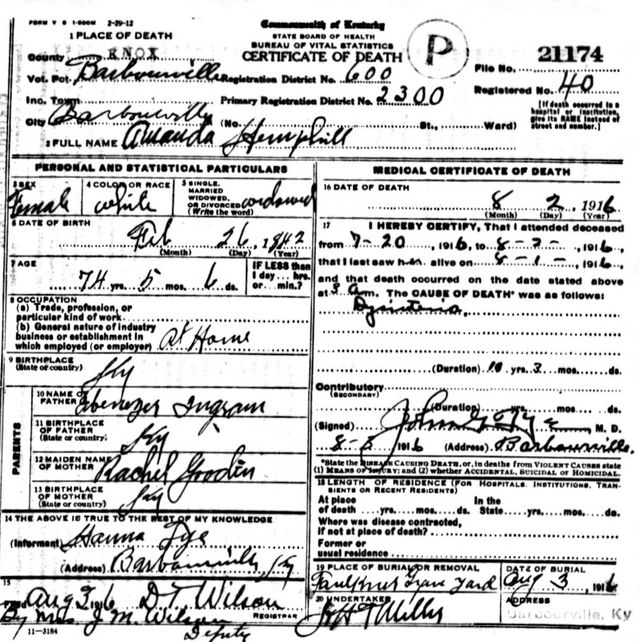 FORM V S 1-500M 2-29-12
Commonwealth of Kentucky
STATE BOARD OF HEALTH
BUREAU OF VITAL STATISTICS
CERTIFICATE OF DEATH
P
1 PLACE OF DEATH
County KNOX
File No. 21174
Vot. Pct. Barbourville Registration District No. 600
Registered No. 40
Inc. Town Primary Registration District No. 2300
[If death occurred in a hospital or institution, give its NAME instead of street and number.]
City Barbourville (No. St., Ward)
2 FULL NAME Amanda Hemphill
PERSONAL AND STATISTICAL PARTICULARS
3 SEX Female
4 COLOR OR RACE white
5 SINGLE, MARRIED WIDOWED, OR DIVORCED widowed
(Write the word)
6 DATE OF BIRTH
Feb 26, 1842
(Month) (Day) (Year)
7 AGE
74 yrs. 5 mos. 6 ds.
IF LESS than 1 day ... hrs. or ... min.?
8 OCCUPATION
(a) Trade, profession, or particular kind of work
(b) General nature of industry business or establishment in which employed (or employer) At Home
9 BIRTHPLACE
(State or country) Ky
PARENTS
10 NAME OF FATHER Ebenezer Ingram
11 BIRTHPLACE OF FATHER
(State or country) Ky
12 MAIDEN NAME OF MOTHER Rachel Gooden
13 BIRTHPLACE OF MOTHER
(State or country) Ky
14 THE ABOVE IS TRUE TO THE BEST OF MY KNOWLEDGE
(Informant) Hanna Tye
(Address) Barbourville Ky
15
Filed Aug 3, 1916 D. T. Wilson
By Mrs J. M. Wilson
REGISTRAR
Deputy
11-3184
MEDICAL CERTIFICATE OF DEATH
16 DATE OF DEATH
8 2, 1916
(Month) (Day) (Year)
17 I HEREBY CERTIFY, That I attended deceased
from 7-20, 1916, to 8-2-, 1916,
that I last saw h alive on 8-1-, 1916,
and that death occurred on the date stated above
at m. The CAUSE OF DEATH* was as follows:
(Duration) yrs. mos. ds.
Contributory
(SECONDARY)
(Duration) yrs. mos. ds.
(Signed) M. D.
1916 (Address) Barbourville.
*State the DISEASE CAUSING DEATH, or, in deaths from VIOLENT CAUSES state
(1) MEANS OF INJURY; and (2) whether ACCIDENTAL, SUICIDAL OR HOMICIDAL.
18 LENGTH OF RESIDENCE (FOR HOSPITALS, INSTITUTIONS, TRANSIENTS OR RECENT RESIDENTS)
At place of death ... yrs. ... mos. ... ds. In the State ... yrs. ... mos. ... ds.
Where was disease contracted,
if not at place of death?
Former or
usual residence
19 PLACE OF BURIAL OR REMOVAL
Faulkner Grave Yard
DATE OF BURIAL
Aug 3, 1916
20 UNDERTAKER
ADDRESS
Barbourville, Ky